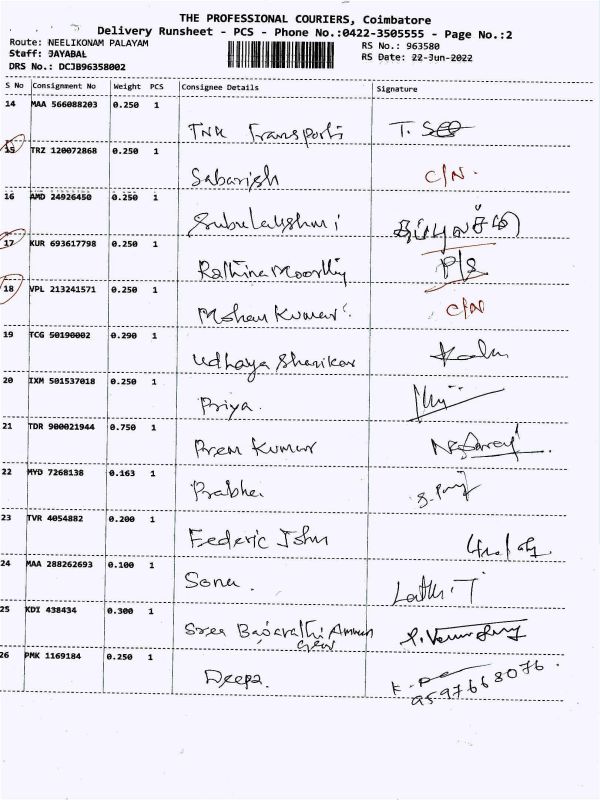 THE PROFESSIONAL COURIERS, Coimbatore
Delivery Runsheet - PCS - Phone No.:0422-3505555 - Page No.:2
Route: NEELIKONAM PALAYAM
RS No.: 963580
Staff: JAYABAL
RS Date: 22-Jun-2022
DRS No.: DCJB96358002
S No Consignment No Weight PCS Consignee Details Signature
14 MAA 566088203 0.250 1
TNU Transports T.
15 TRZ 120072868 0.250 1
Sabarish C/N.
16 AMD 24926450 0.250 1
Subulakshmi
17 KUR 693617798 0.250 1
Rathina Moorthy P/S
18 VPL 213241571 0.250 1
Mohan Kumar C/N
19 TCG 50190002 0.290 1
Udhaya Shankar
20 IXM 501537018 0.250 1
Priya.
21 TDR 900021944 0.750 1
Prem Kumar
22 MYD 7268138 0.163 1
Prabhu
23 TVR 4054882 0.200 1
Federic John
24 MAA 288262693 0.100 1
Sona.
25 KDI 438434 0.300 1
Sree Amman
26 PMK 1169184 0.250 1
Deepa. K.
9597668076.